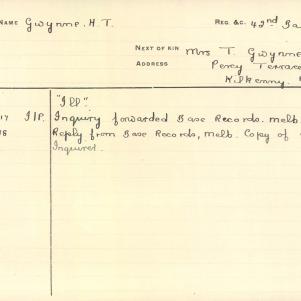 NAME Gwynne. H. T. REG. &C. 42nd Ba
NEXT OF KIN Mrs T. Gwynne
ADDRESS Percy Terrac
Kilkenny.
"Ill".
17 I/P. Inquiry forwarded Base Records. melb
18 Reply from Base Records, melb. Copy of
Inquirer.